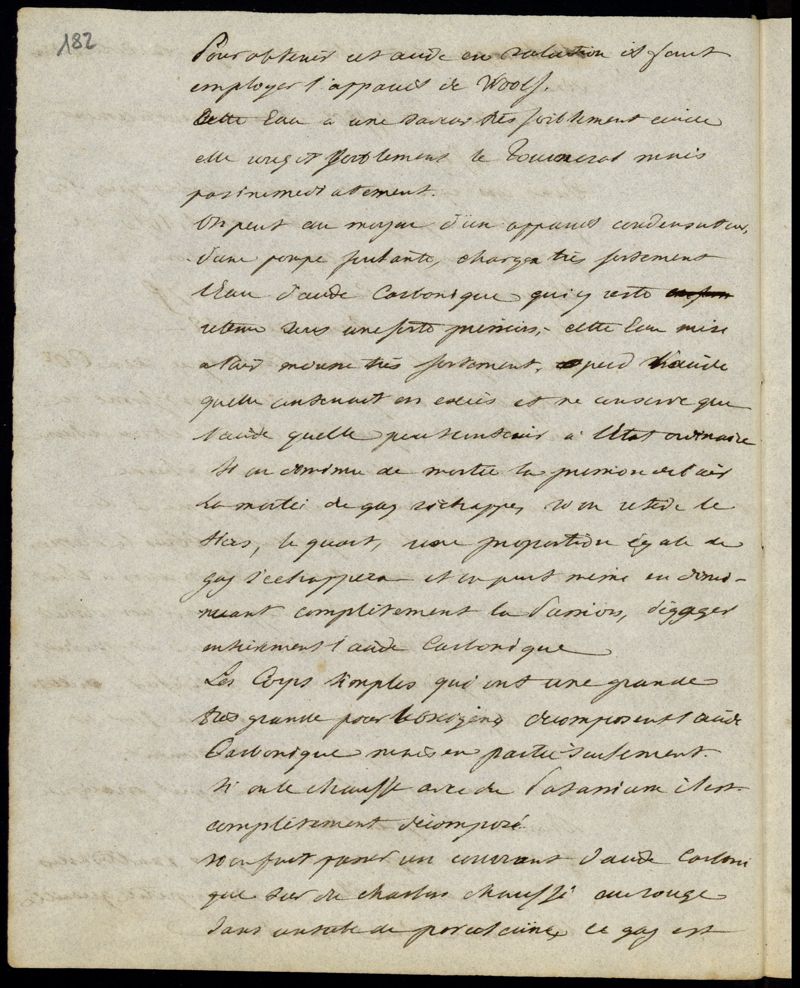 182
Pour obtenir cet acide en solution il faut
employer l'appareil de Woolf.
Cette Eau à une saveur très foiblement acide
elle rougit foiblement le Tournesol mais
pas immediatement.
On peut au moyen d'un appareil condensateur,
d'une pompe foulante, charger très fortement
l'Eau d'acide Carbonique qui y reste
retenu sous une forte pression, cette Eau mise
a l'air mousse très fortement, perd l'acide
quelle contenoit en excès et ne conserve que
l'acide quelle peut contenir à l'Etat ordinaire
Si on diminue de moitié la pression de l'air
La moitié de gaz s'echappe, si on retire le
tiers, le quart, une proportion égale de
gaz s'echappera et on peut meme en dimi-
nuant complètement la Pression, dégager
entierement l'acide Carbonique
Les Corps simples qui ont une grande
très grande pour l'oxigene décomposent l'acide
Carbonique mais en partie seulement.
Si on le chauffe avec du Potassium il est
complètement décomposé
Si on fait passer un courant d'acide Carboni
que sur du charbon chauffé au rouge
dans un tube de porcelaine, ce gaz est